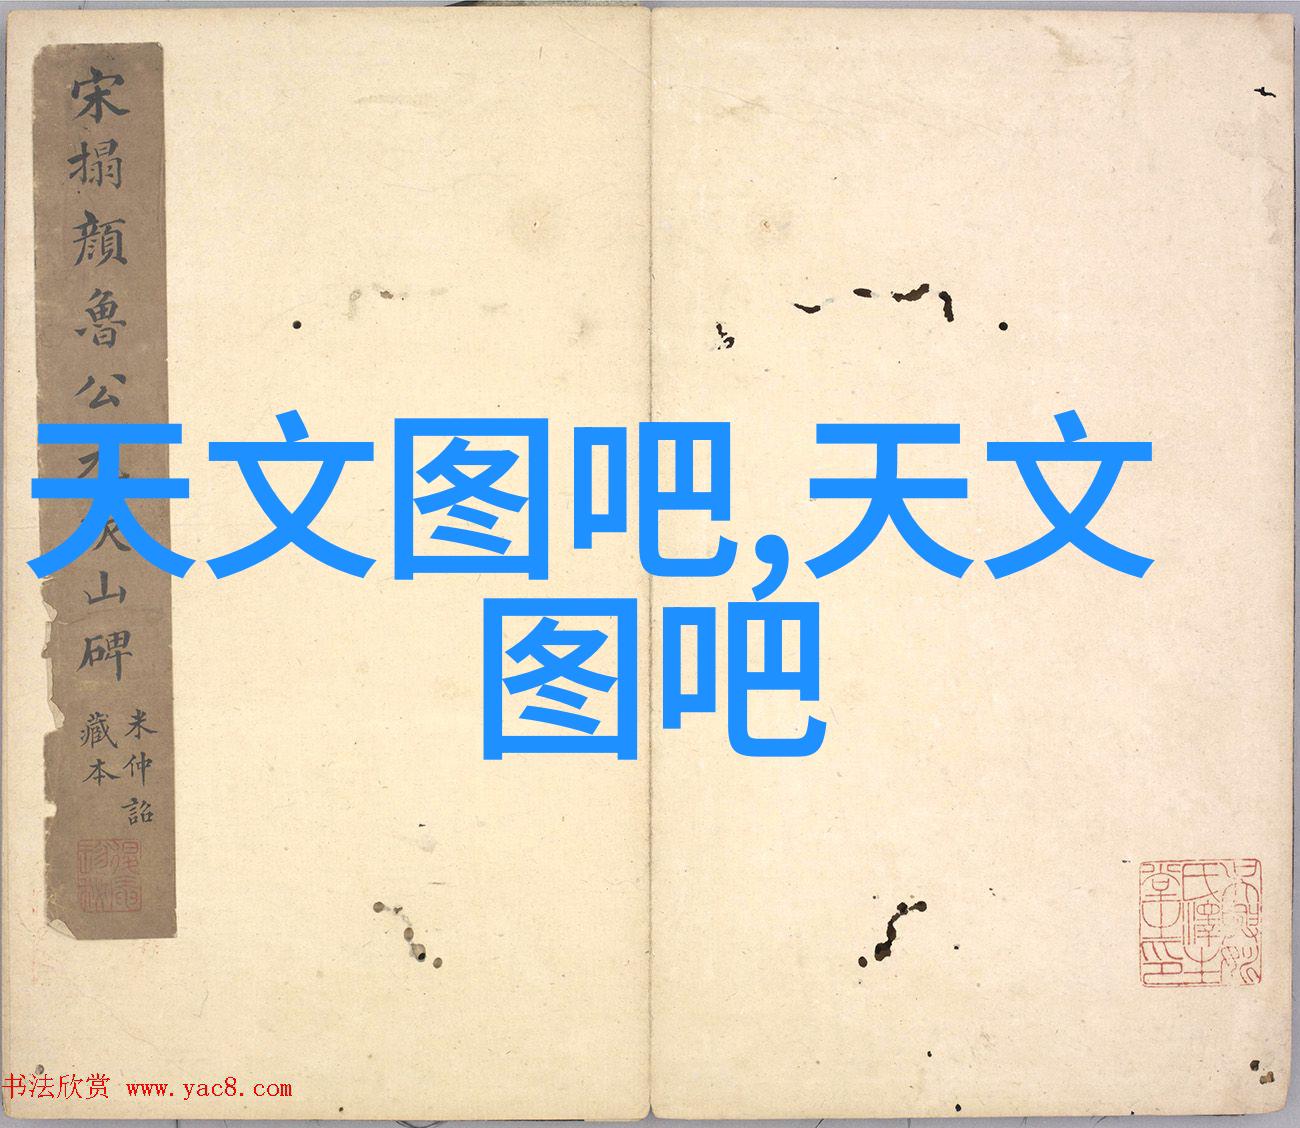 宋搨顔魯公
山碑
米仲詔
藏本
天文图吧,天文
图吧
书法欣赏 www.yac8.com